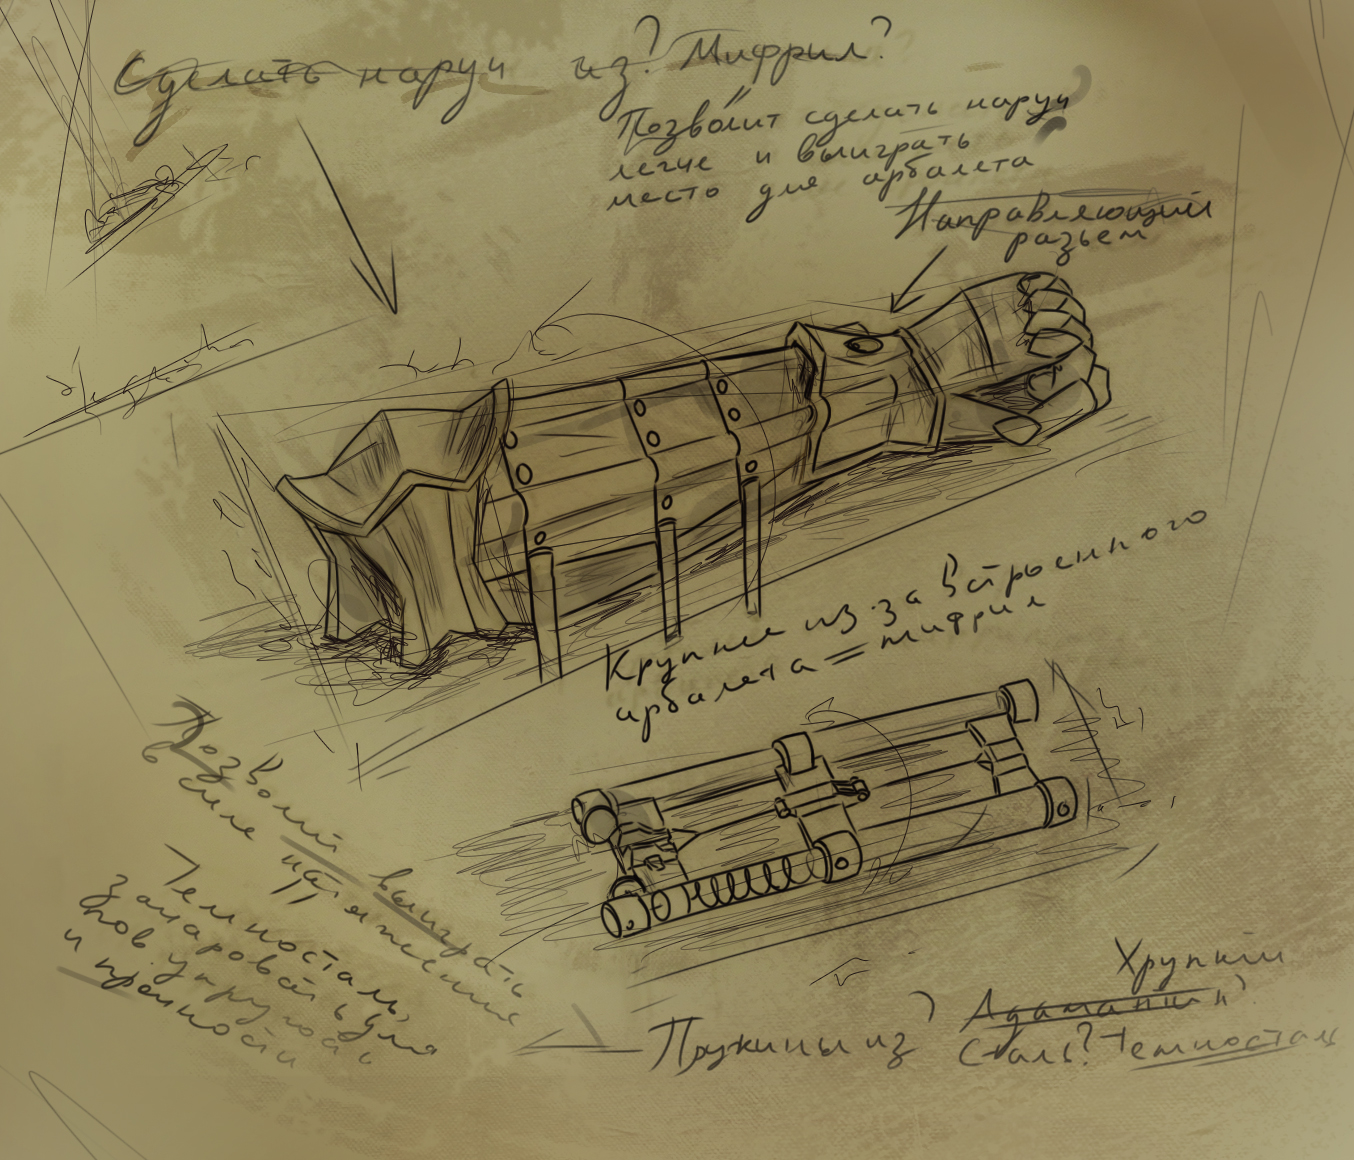 Сделать наруч из? Мифрил?
Позволит сделать наруч
легче и выиграть
место для арбалета
Направляющий
разъем
Крупнее из-за встроенного
арбалета = мифрил
Позволит выиграть
в силе натяжения
Темносталь,
зачаровать для
пов. упругости
и прочности
Хрупкий
Пружины из? Адамантий?
Сталь? Темносталь